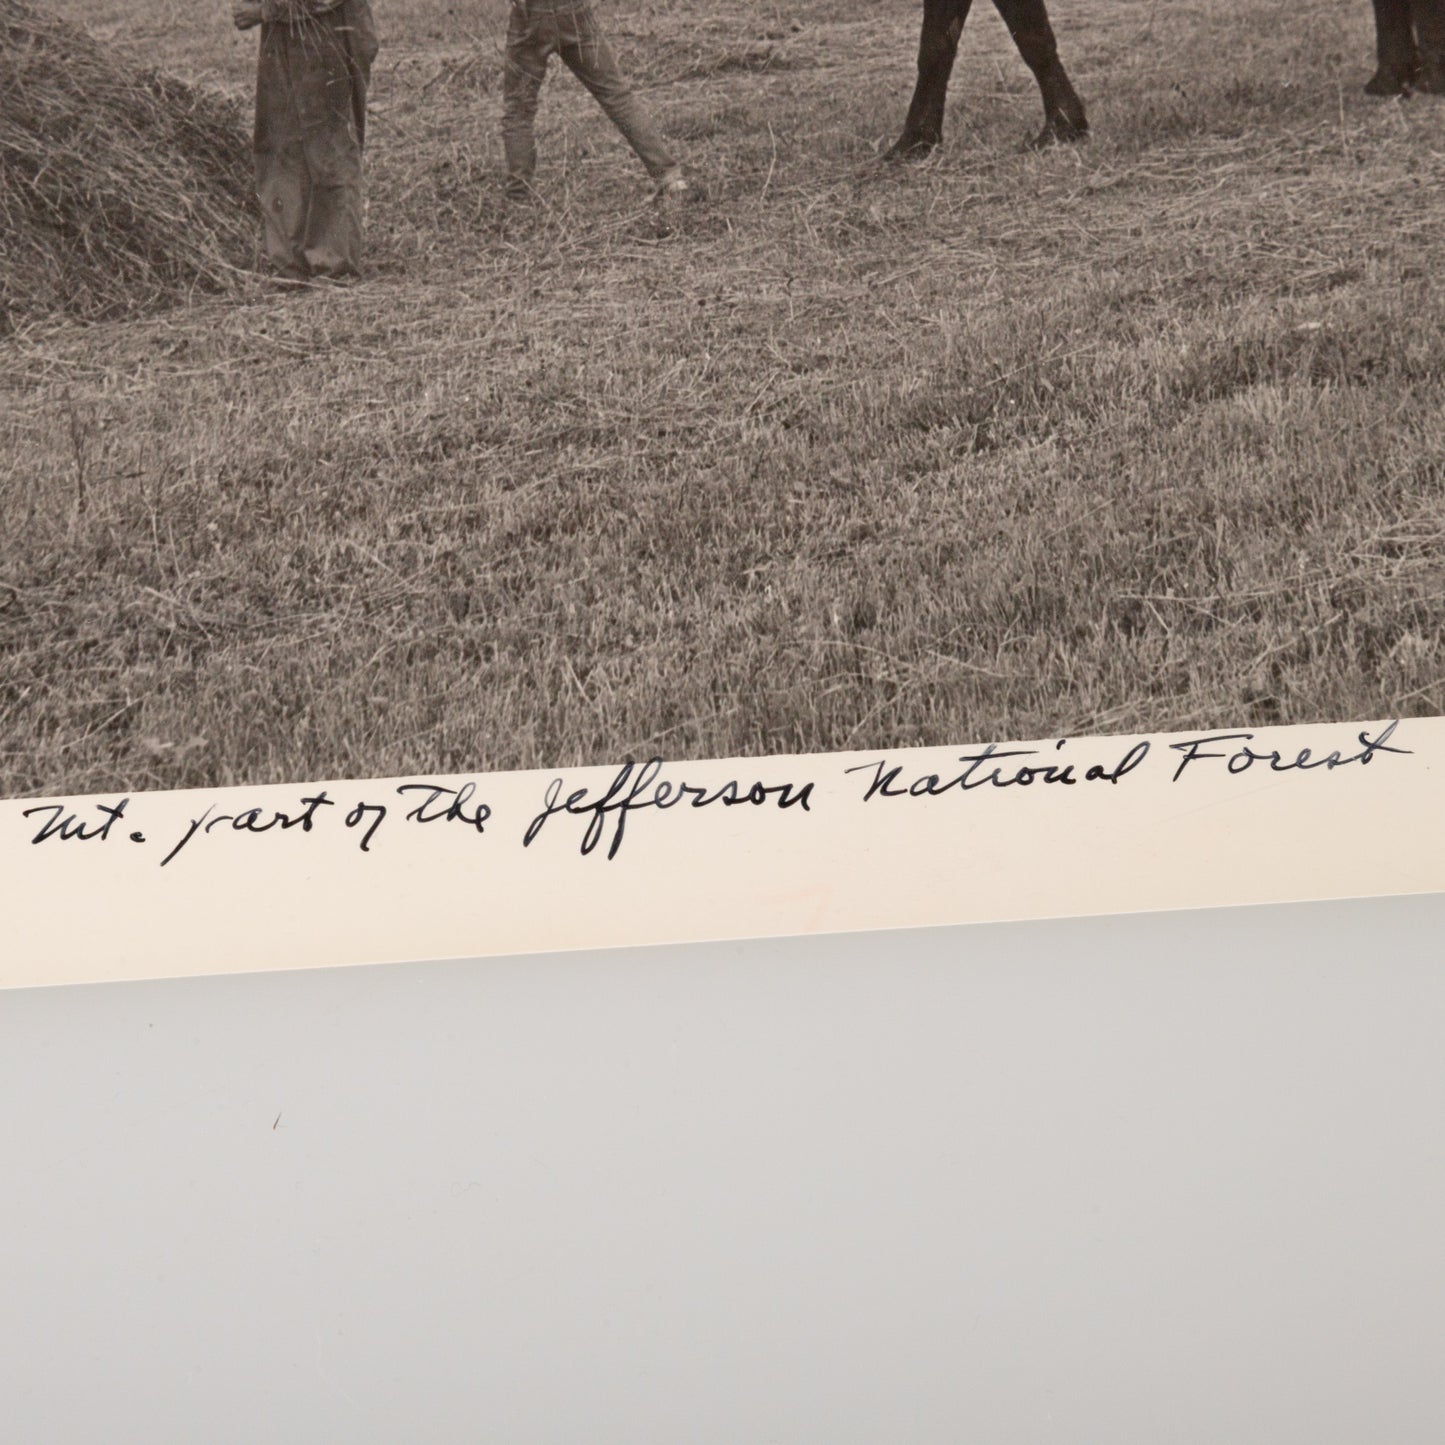 Mt. part of The Jefferson National Forest